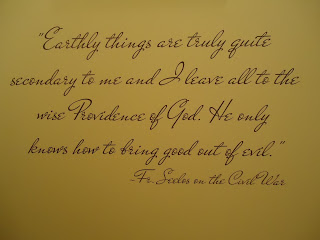 "Earthly things are truly quite
secondary to me and I leave all to the
wise Providence of God. He only
knows how to bring good out of evil."
-Fr. Seelos on the Civil War